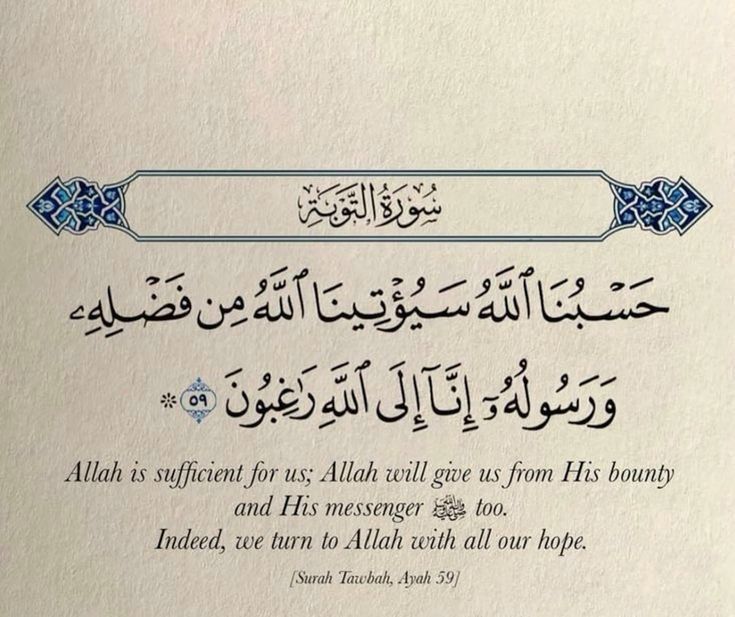 سُورَةُ التَّوْبَةِ
حَسْبُنَا ٱللَّهُ سَيُؤْتِينَا ٱللَّهُ مِن فَضْلِهِۦ
وَرَسُولُهُۥٓ إِنَّآ إِلَى ٱللَّهِ رَٰغِبُونَ ٥٩ *
Allah is sufficient for us; Allah will give us from His bounty
and His messenger ﷺ too.
Indeed, we turn to Allah with all our hope.
[Surah Tawbah, Ayah 59]